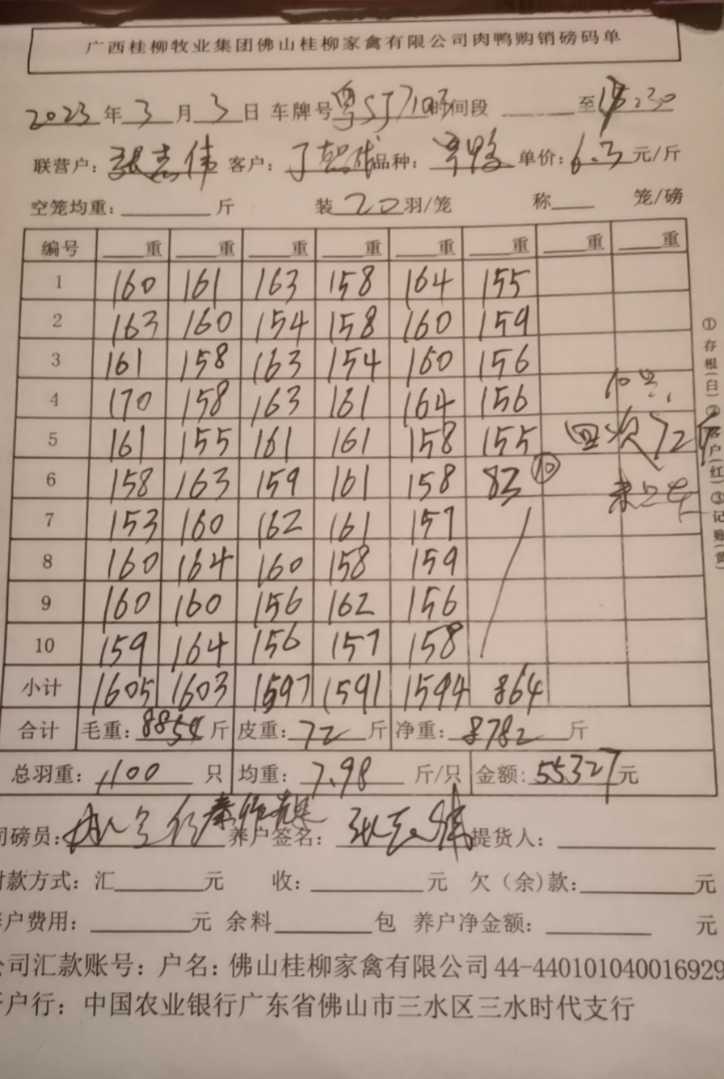 广西桂柳牧业集团佛山桂柳家禽有限公司肉鸭购销磅码单
2023 年 3 月 3 日 车牌号 粤SJ7103 时间段 至 15:30
联营户: 张志伟 客户: 丁 品种: 单价: 6.3 元/斤
空笼均重: 斤 装 20 羽/笼 称 笼/磅
编号 重 重 重 重 重 重 重 重
1 160 161 163 158 164 155
2 163 160 154 158 160 159
3 161 158 163 154 160 156
4 170 158 163 161 164 156
5 161 155 161 161 158 155
6 158 163 159 161 158 83 ⑩
7 153 160 162 161 157
8 160 164 160 158 159
9 160 160 156 162 156
10 159 164 156 157 158
小计 1605 1603 1597 1591 1594 864
10只,
四次72斤
合计 毛重: 8854 斤 皮重: 72 斤 净重: 8782 斤
总羽重: 1100 只 均重: 7.98 斤/只 金额: 55327 元
司磅员: 养户签名: 张志伟 提货人:
付款方式: 汇 元 收: 元 欠(余)款: 元
养户费用: 元 余料 包 养户净金额: 元
公司汇款账号: 户名: 佛山桂柳家禽有限公司 44-440101040016929
开户行: 中国农业银行广东省佛山市三水区三水时代支行
①存根(白)②客户(红)③记账(黄)